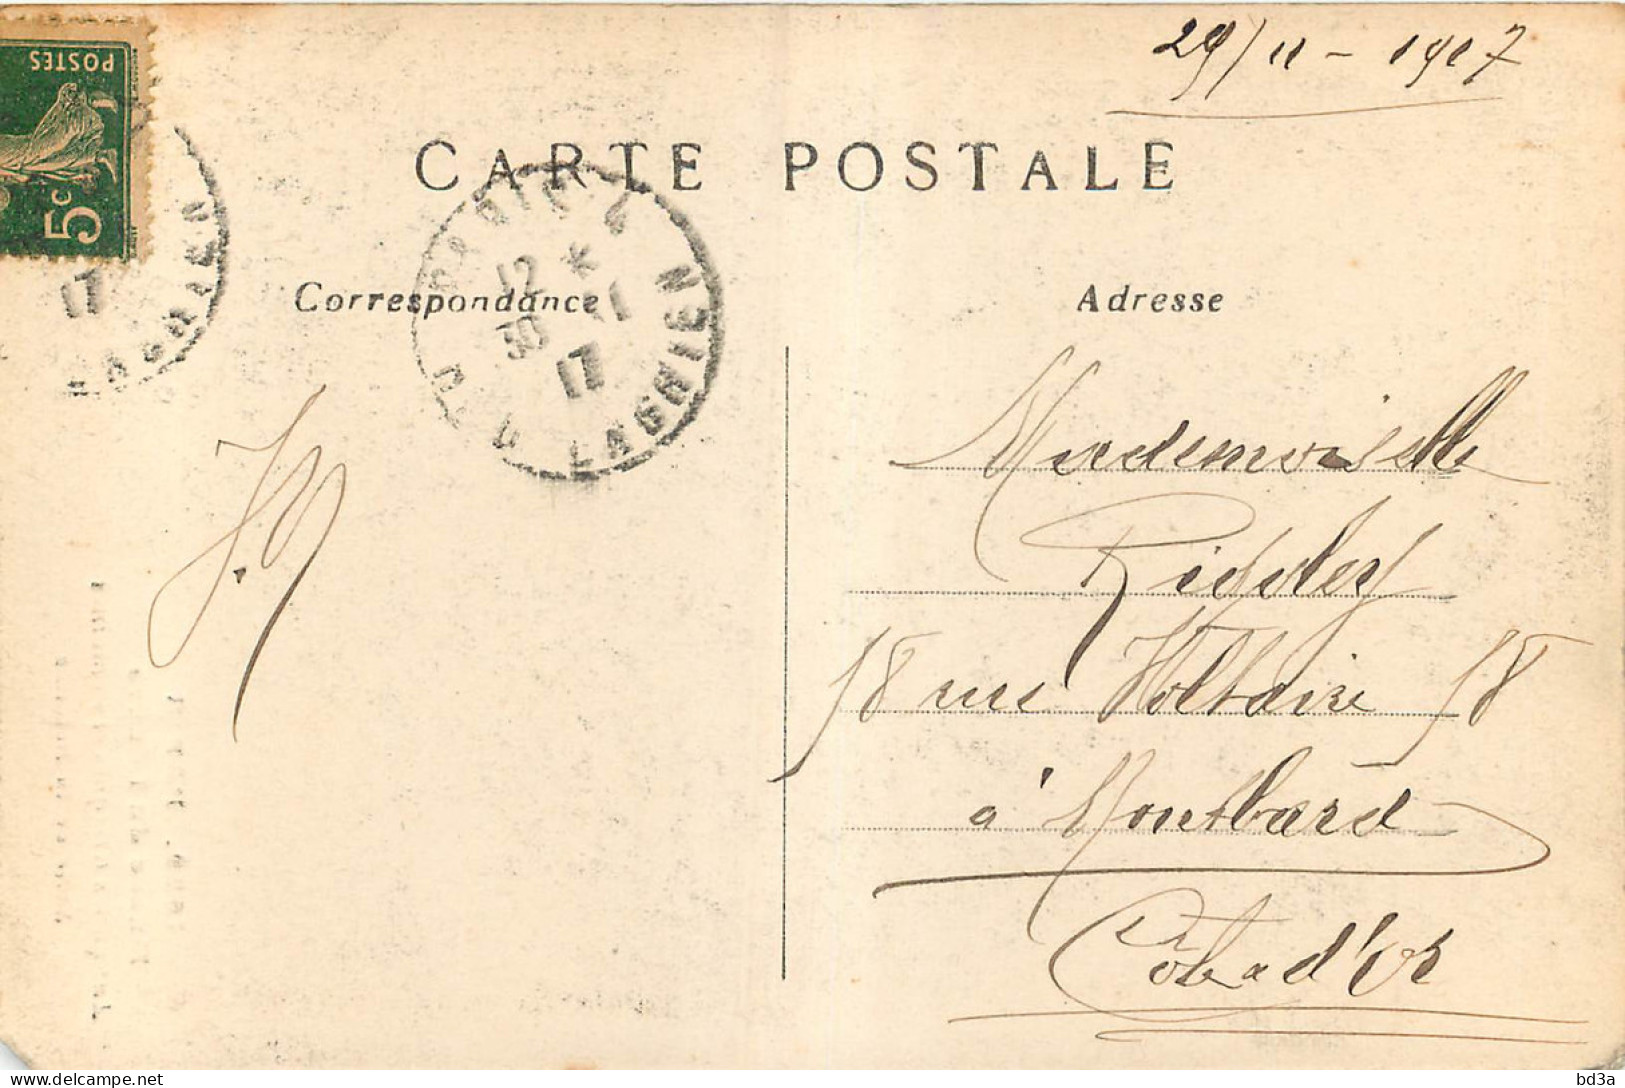 29/11 - 1917
POSTES
5c
CARTE POSTALE
PARIS 4
12 * 
30 11
17
R. DU LAGNIEN
17
LAGNIEN
Correspondance
Adresse
Mademoiselle
18 rue Voltaire 18
à Montbard
Côte d'Or
bd3a